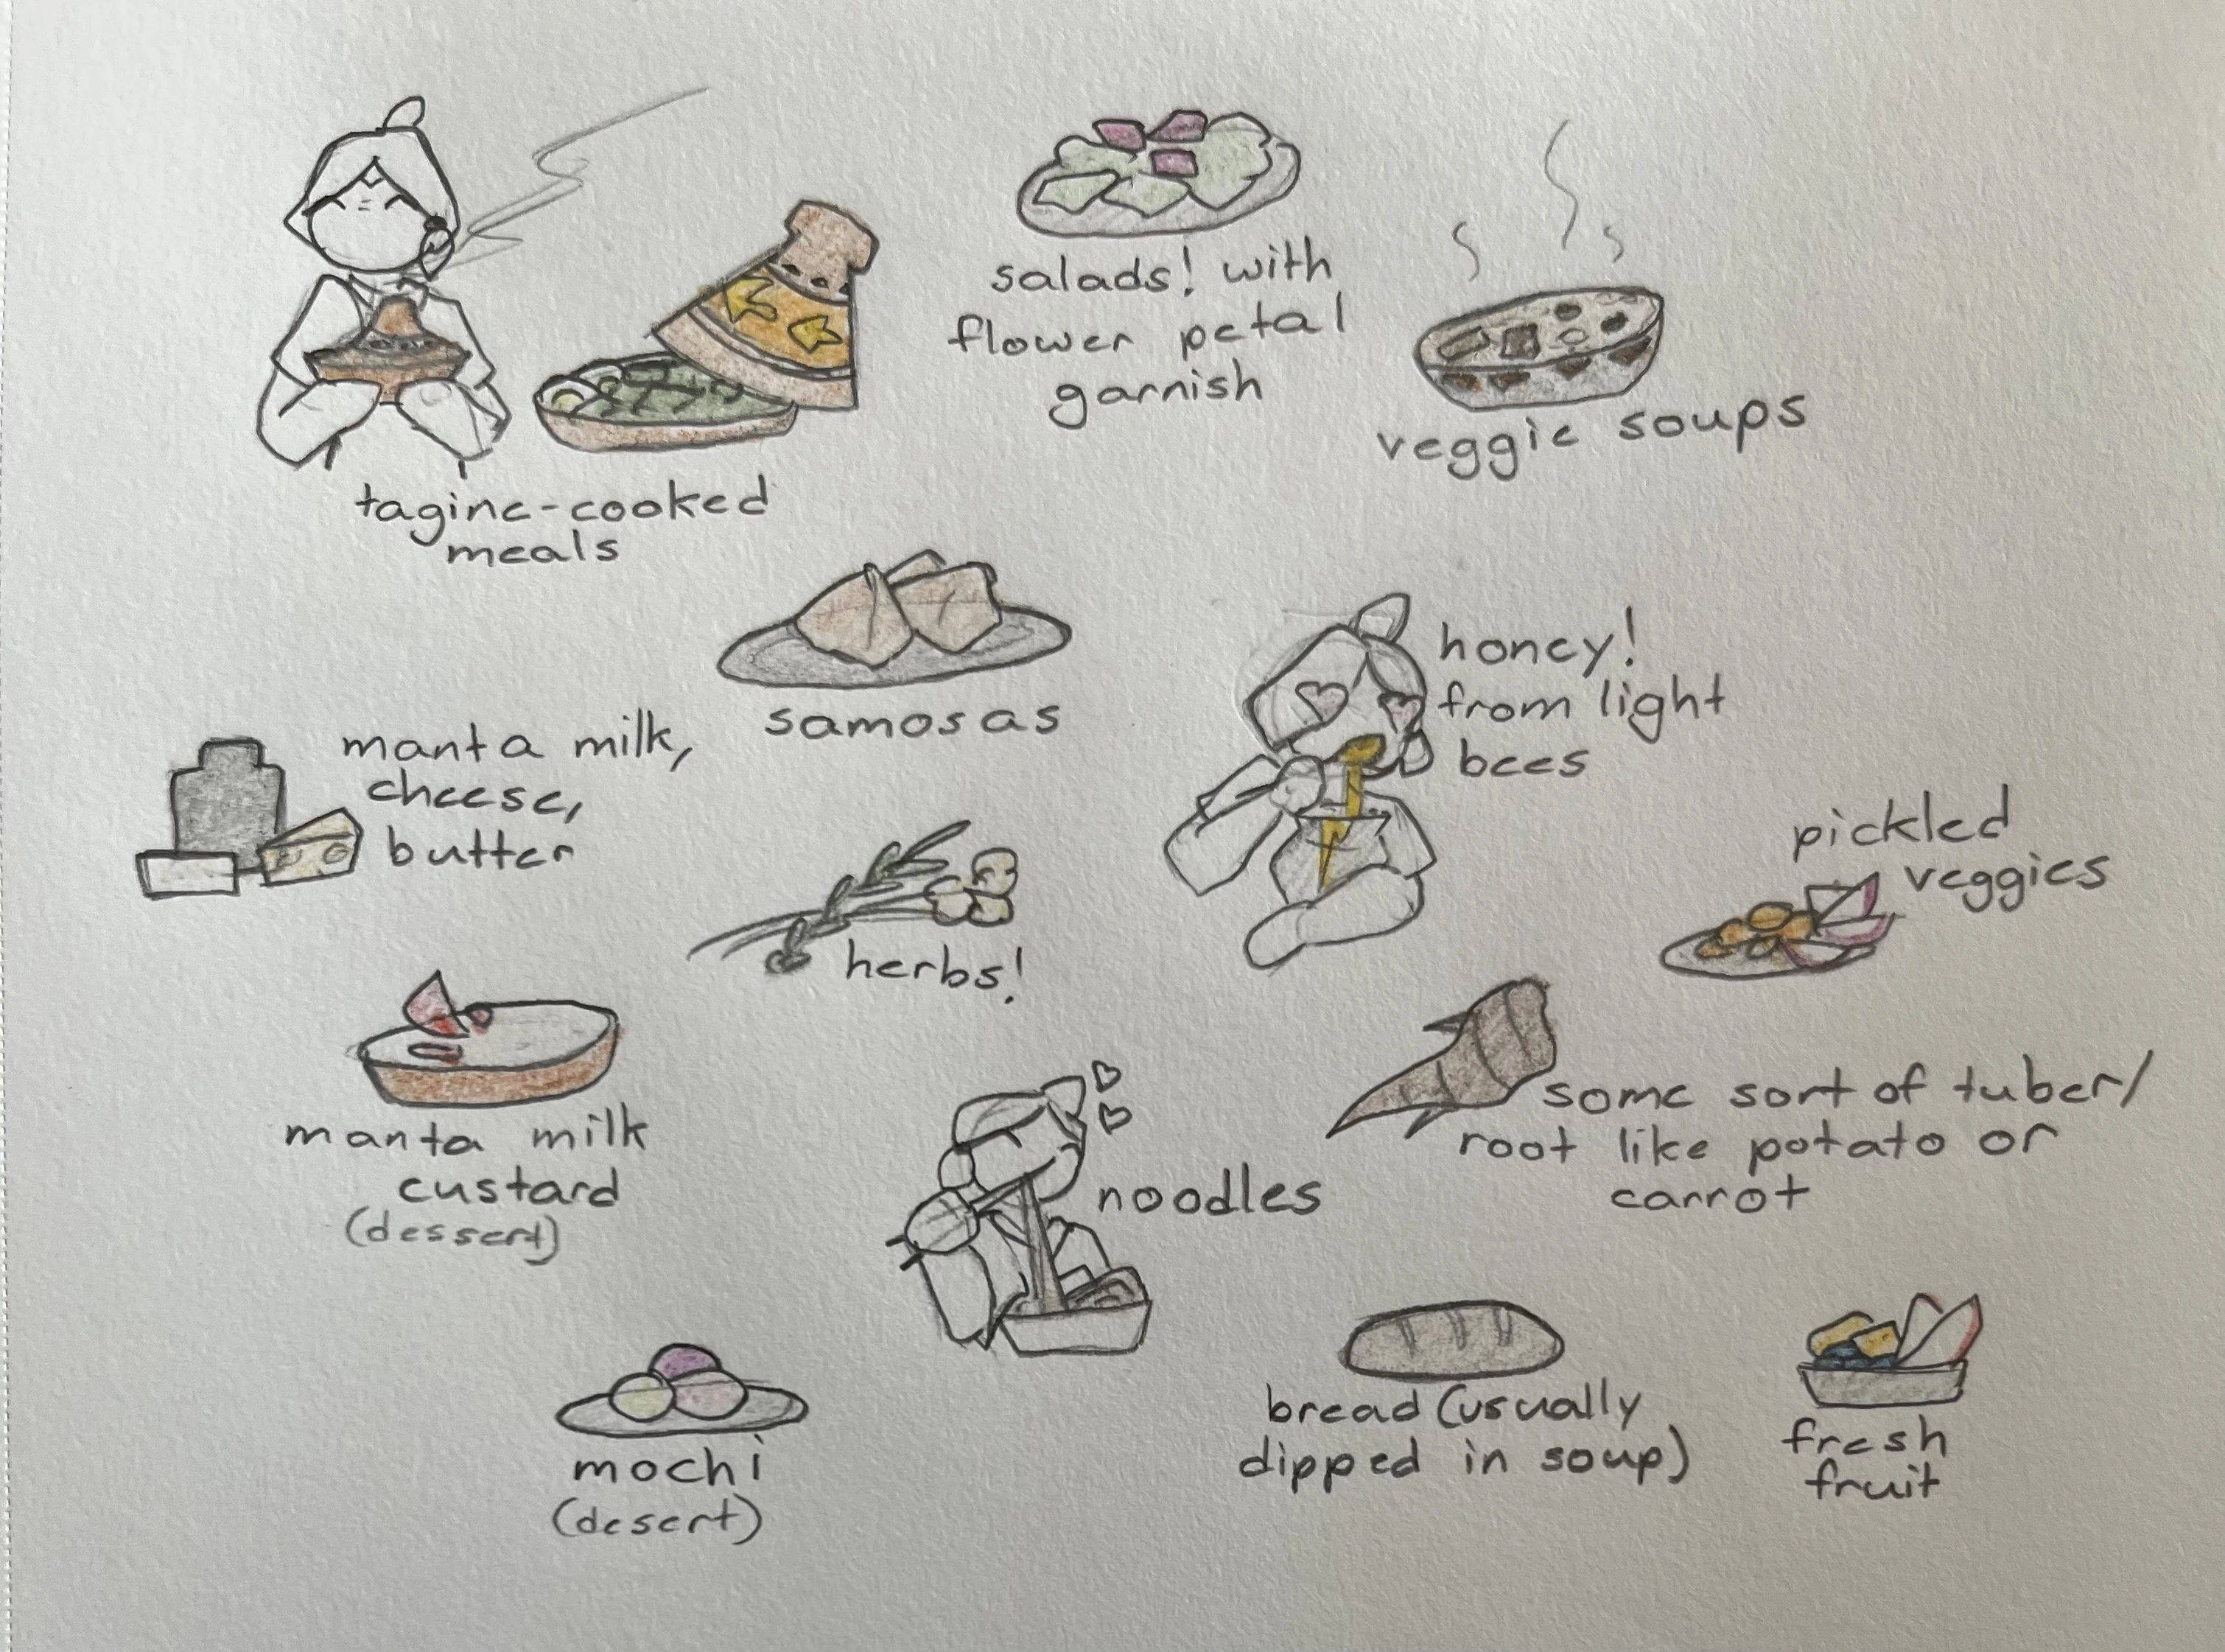 tagine-cooked
meals
salads! with
flower petal
garnish
veggie soups
samosas
honey!
from light
bees
manta milk,
cheese,
butter
herbs!
pickled
veggies
manta milk
custard
(dessert)
noodles
some sort of tuber/
root like potato or
carrot
mochi
(desert)
bread (usually
dipped in soup)
fresh
fruit